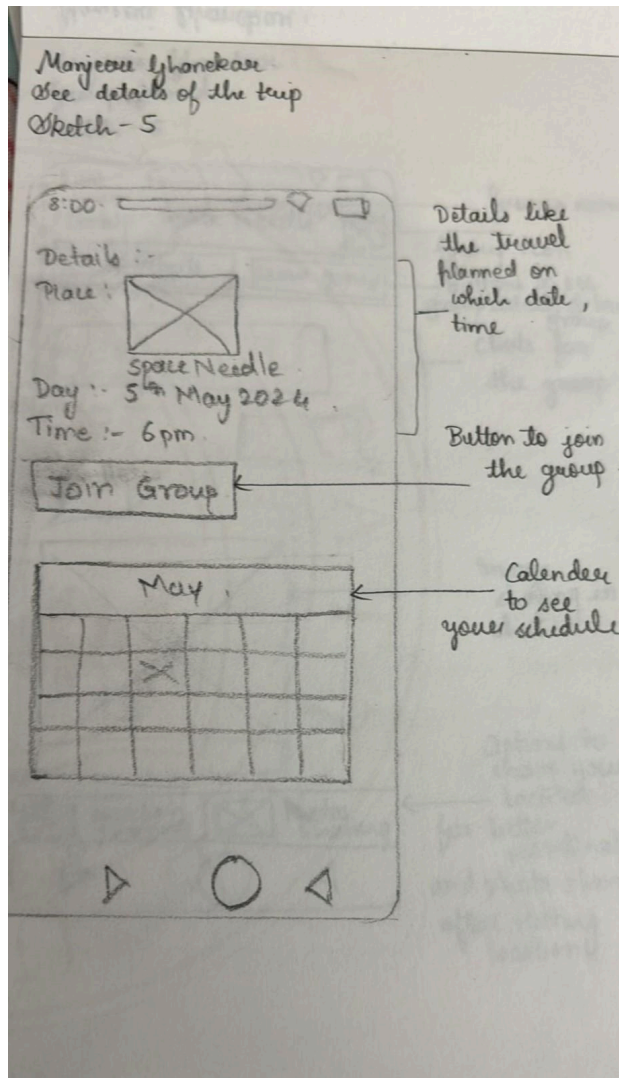 Manjeeri Ghanekar
See details of the trip
Sketch - 5
8:00
Details :-
Place :
Space Needle
Day :- 5th May 2024
Time :- 6pm
Join Group
May
Details like
the travel
planned on
which date,
time
Button to join
the group
Calender
to see
your schedule